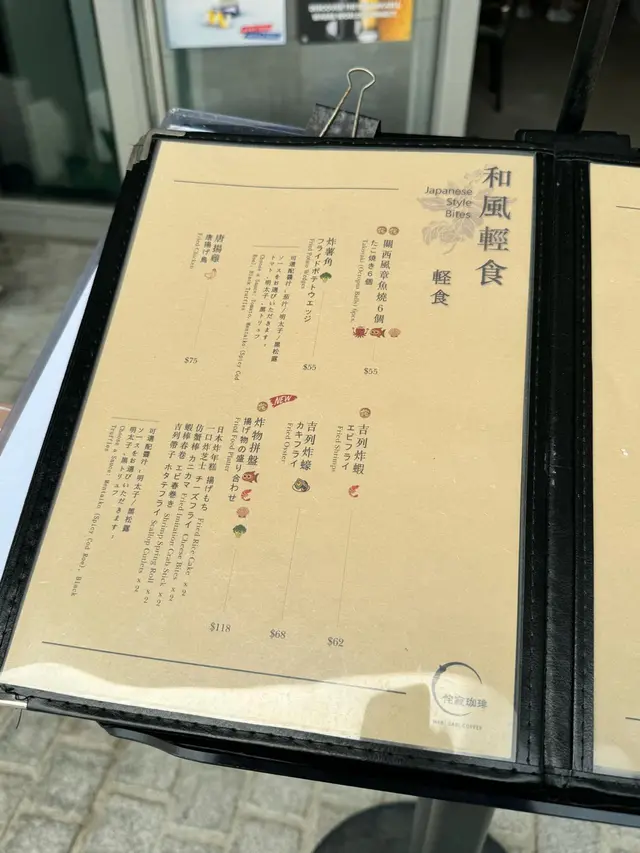 和風輕食
Japanese
Style
Bites
軽食
關西風章魚燒6個
たこ焼き6個
Takoyaki (Octopus Balls) 6pcs
$55
炸薯角
フライドポテトウェッジ
Fried Potato Wedges
可選配醬汁：茄汁/明太子/黑松露
ソースをお選びいただきます。
トマト、明太子、黒トリュフ
Choose a Sauce: Tomato, Mentaiko (Spicy Cod
Roe), Black Truffles
$55
唐揚雞
唐揚げ鳥
Fried Chicken
$75
吉列炸蝦
エビフライ
Fried Shrimps
$62
吉列炸蠔
カキフライ
Fried Oyster
$68
NEW
炸物拼盤
揚げ物の盛り合わせ
Fried Food Platter
日本炸年糕 揚げもち Fried Rice Cake x 2
一口炸芝士 チーズフライ Cheese Bites x 2
仿蟹棒 カニカマ Fried Imitation Crab Stick x 2
蝦棒春卷 エビ春巻き Shrimp Spring Roll x 2
吉列帶子 ホタテフライ Scallop Cutlets x 2
$118
可選配醬汁：明太子/黑松露
ソースをお選びいただきます。
明太子、黒トリュフ
Choose a Sauce: Mentaiko (Spicy Cod Roe), Black
Truffles
侘寂珈琲
WABI SABI COFFEE